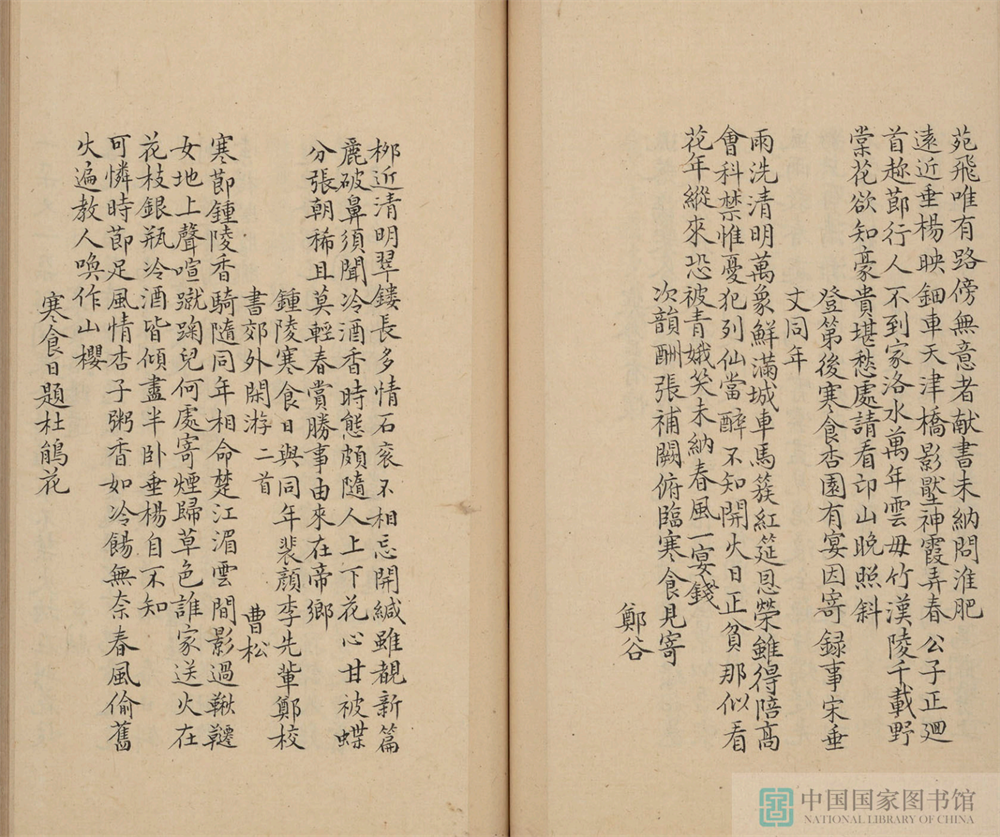 苑飛唯有路傍無意者献書未納問淮肥
遠近垂楊映鈿車天津橋影壓神霞弄春公子正廻
首趂節行人不到家洛水萬年雲毋竹漢陵千載野
棠花欲知豪貴堪愁處請看卬山晩照斜
登第後寒食杏園有宴因寄録事宋垂
文同年
雨洗清明萬象鮮滿城車馬簇紅筵恩榮雖得陪高
會科禁惟憂犯列仙當醉不知開火日正貧那似看
花年縱來恐被青娥笑未納春風一宴錢
次韻酬張補闕俯臨寒食見寄
鄭谷
栁近清明翠鏤長多情石衮不相忘開緘雖覩新篇
麗破鼻須聞冷酒香時態頗隨人上下花心甘被蝶
分張朝稀且莫輕春賞勝事由來在帝鄉
鍾陵寒食日與同年裴顔李先輩鄭校
書郊外閑游二首
曹松
寒節鍾陵香騎隨同年相命楚江湄雲間影過鞦韆
女地上聲喧蹴踘兒何處寄煙歸草色誰家送火在
花枝銀瓶冷酒皆傾盡半卧垂楊自不知
可憐時節足風情杏子粥香如冷餳無奈春風偷舊
火遍教人喚作山櫻
寒食日題杜鵑花
中国国家图书馆
NATIONAL LIBRARY OF CHINA